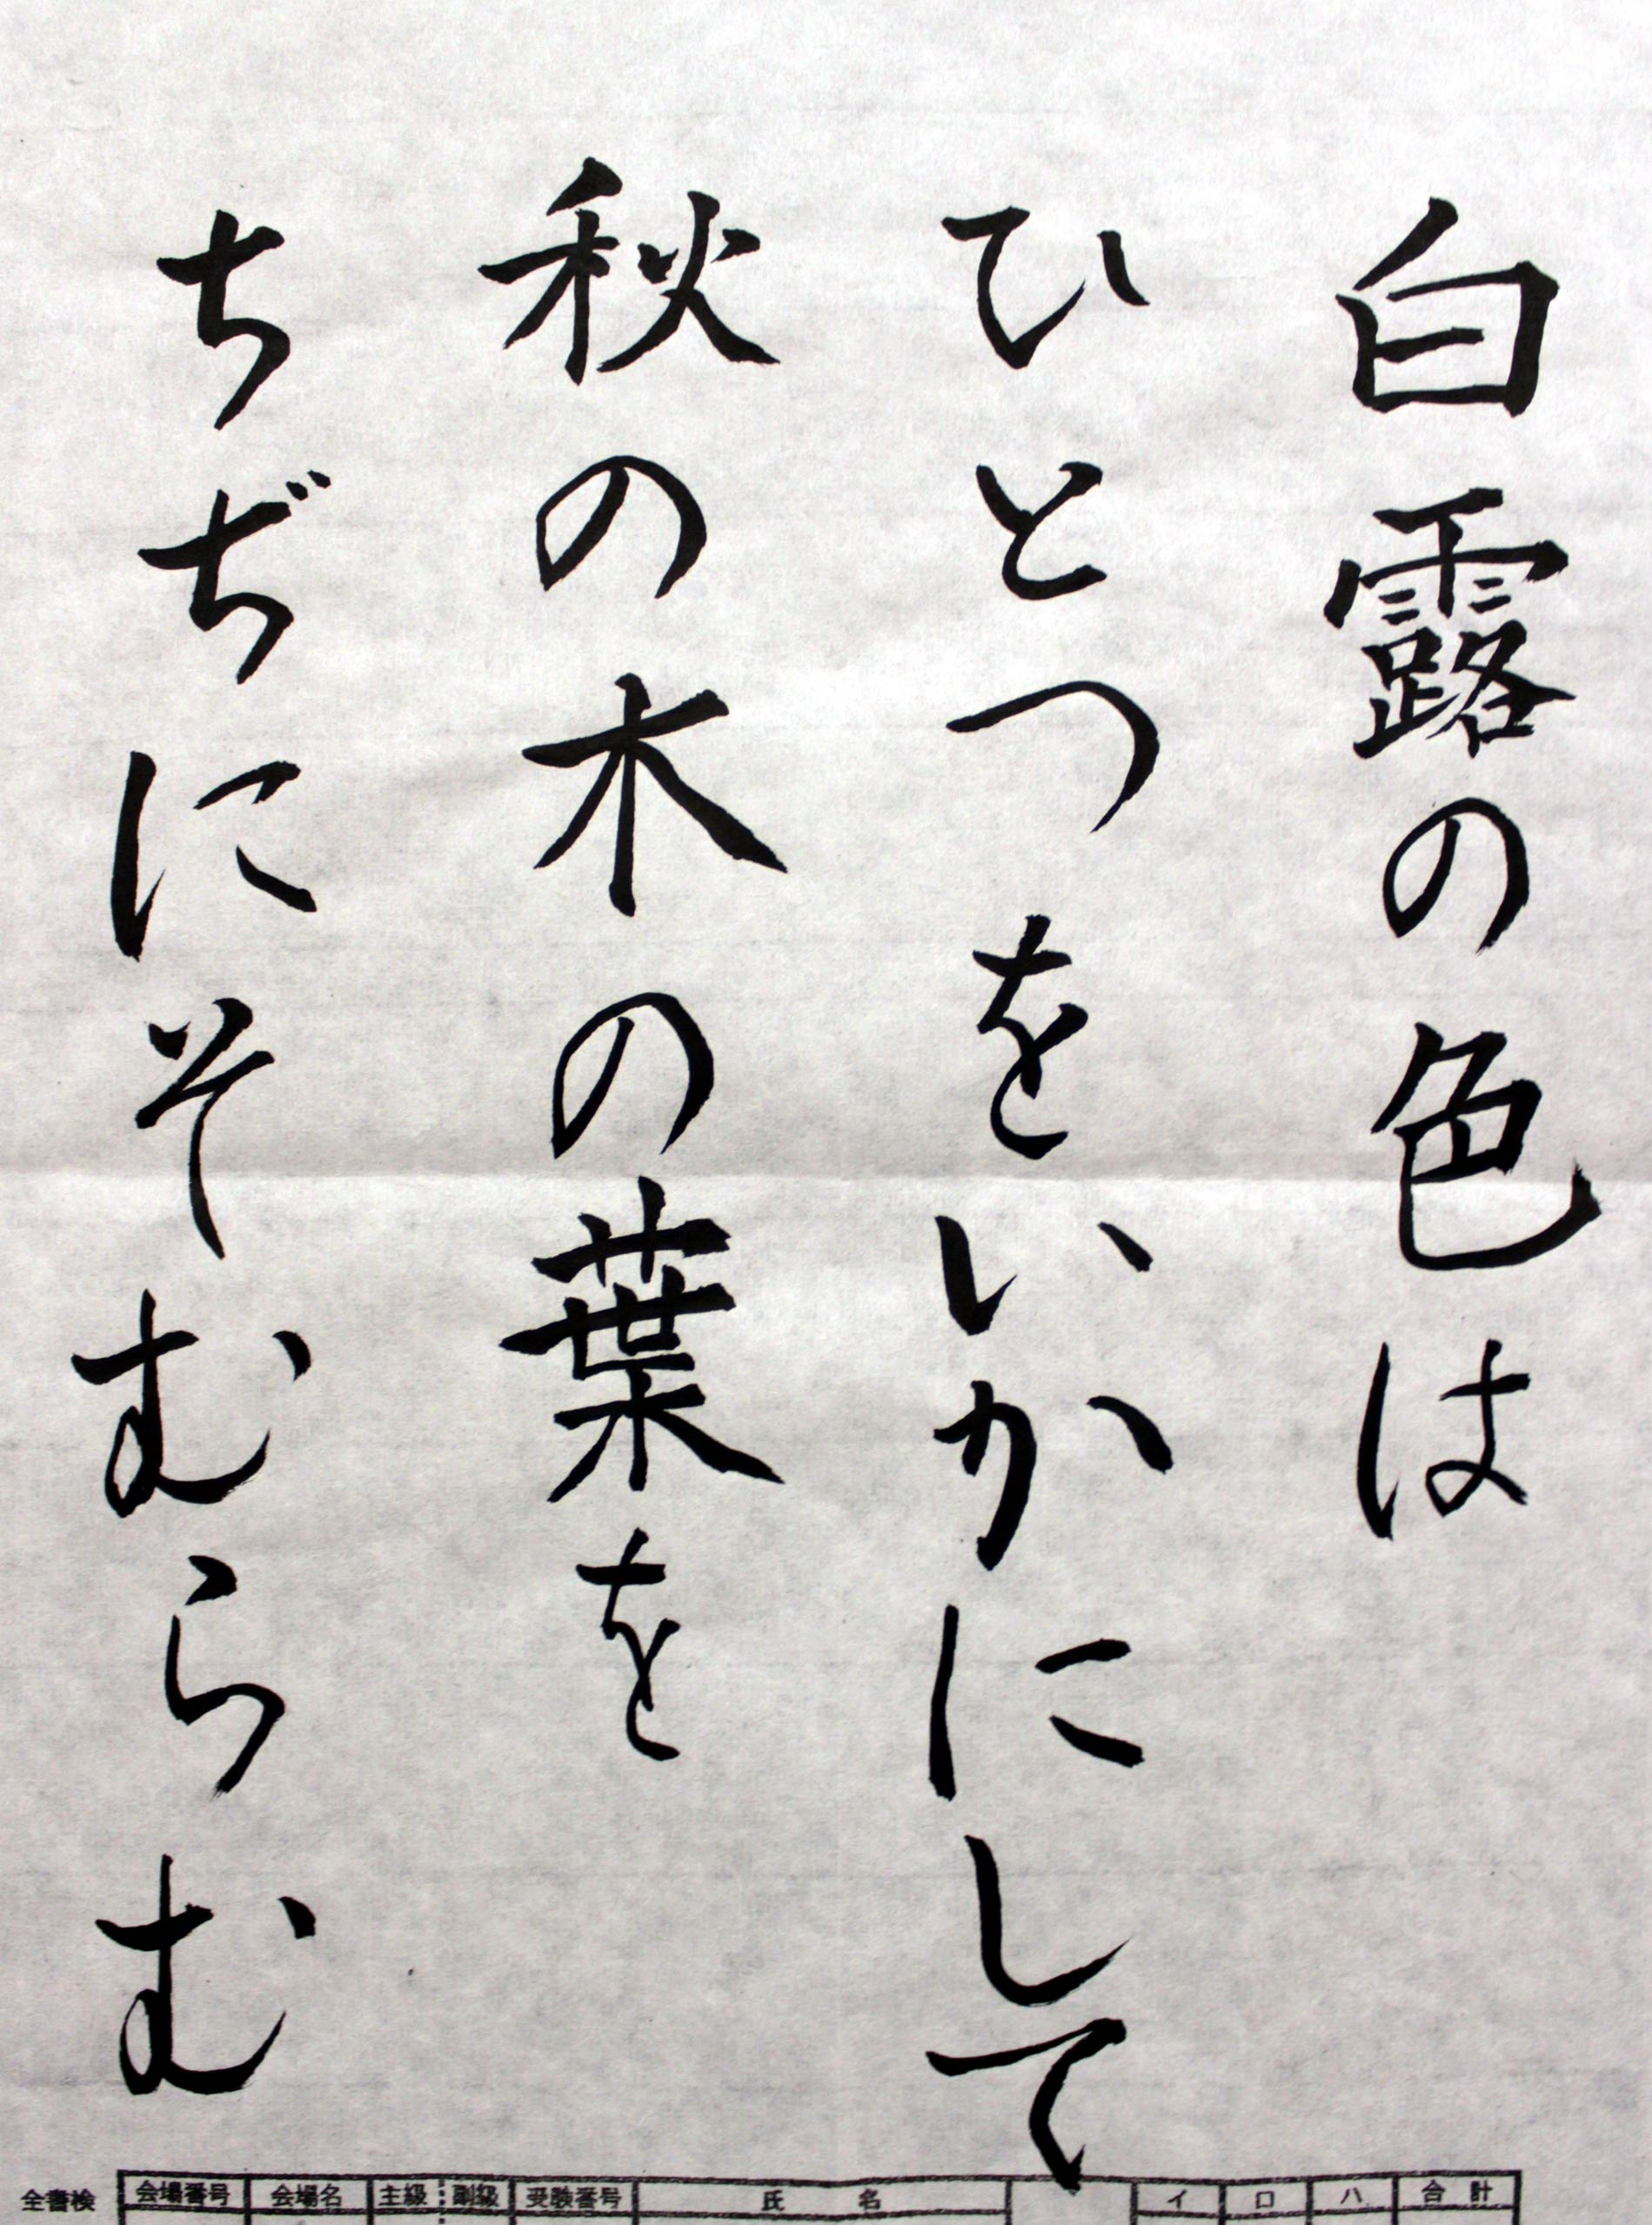 白露の色は
ひとつをいかにして
秋の木の葉を
ちぢにそむらむ
全書検 会場番号 会場名 主級 副級 受験番号 氏名 イ ロ ハ 合計